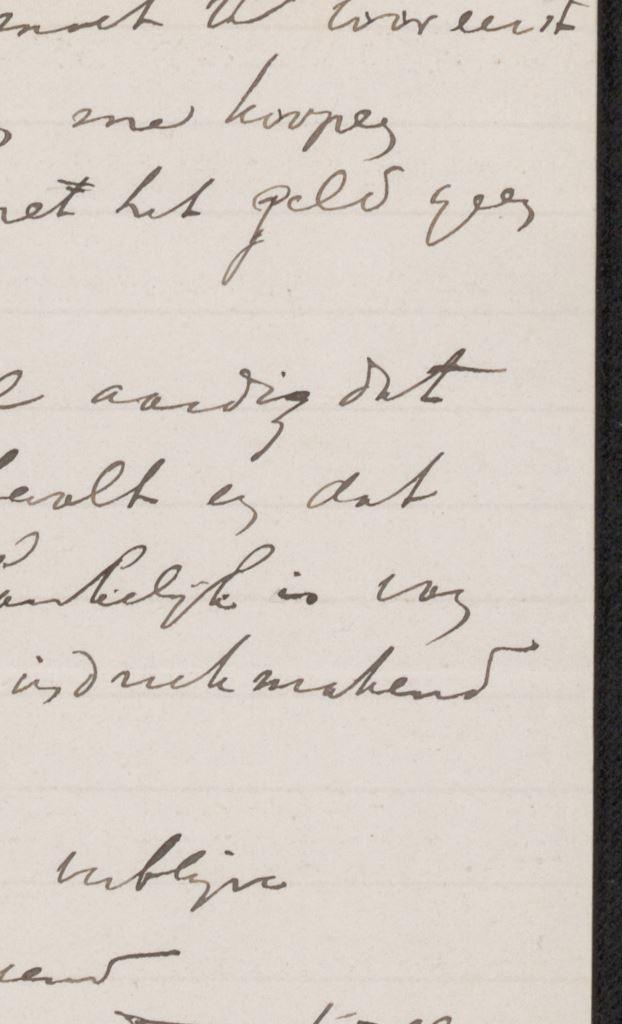 moet U vooreerst
me koopen
met het geld geen
aardig dat
bevalt en dat
dankelijk is von
indrukmakend
verblijve